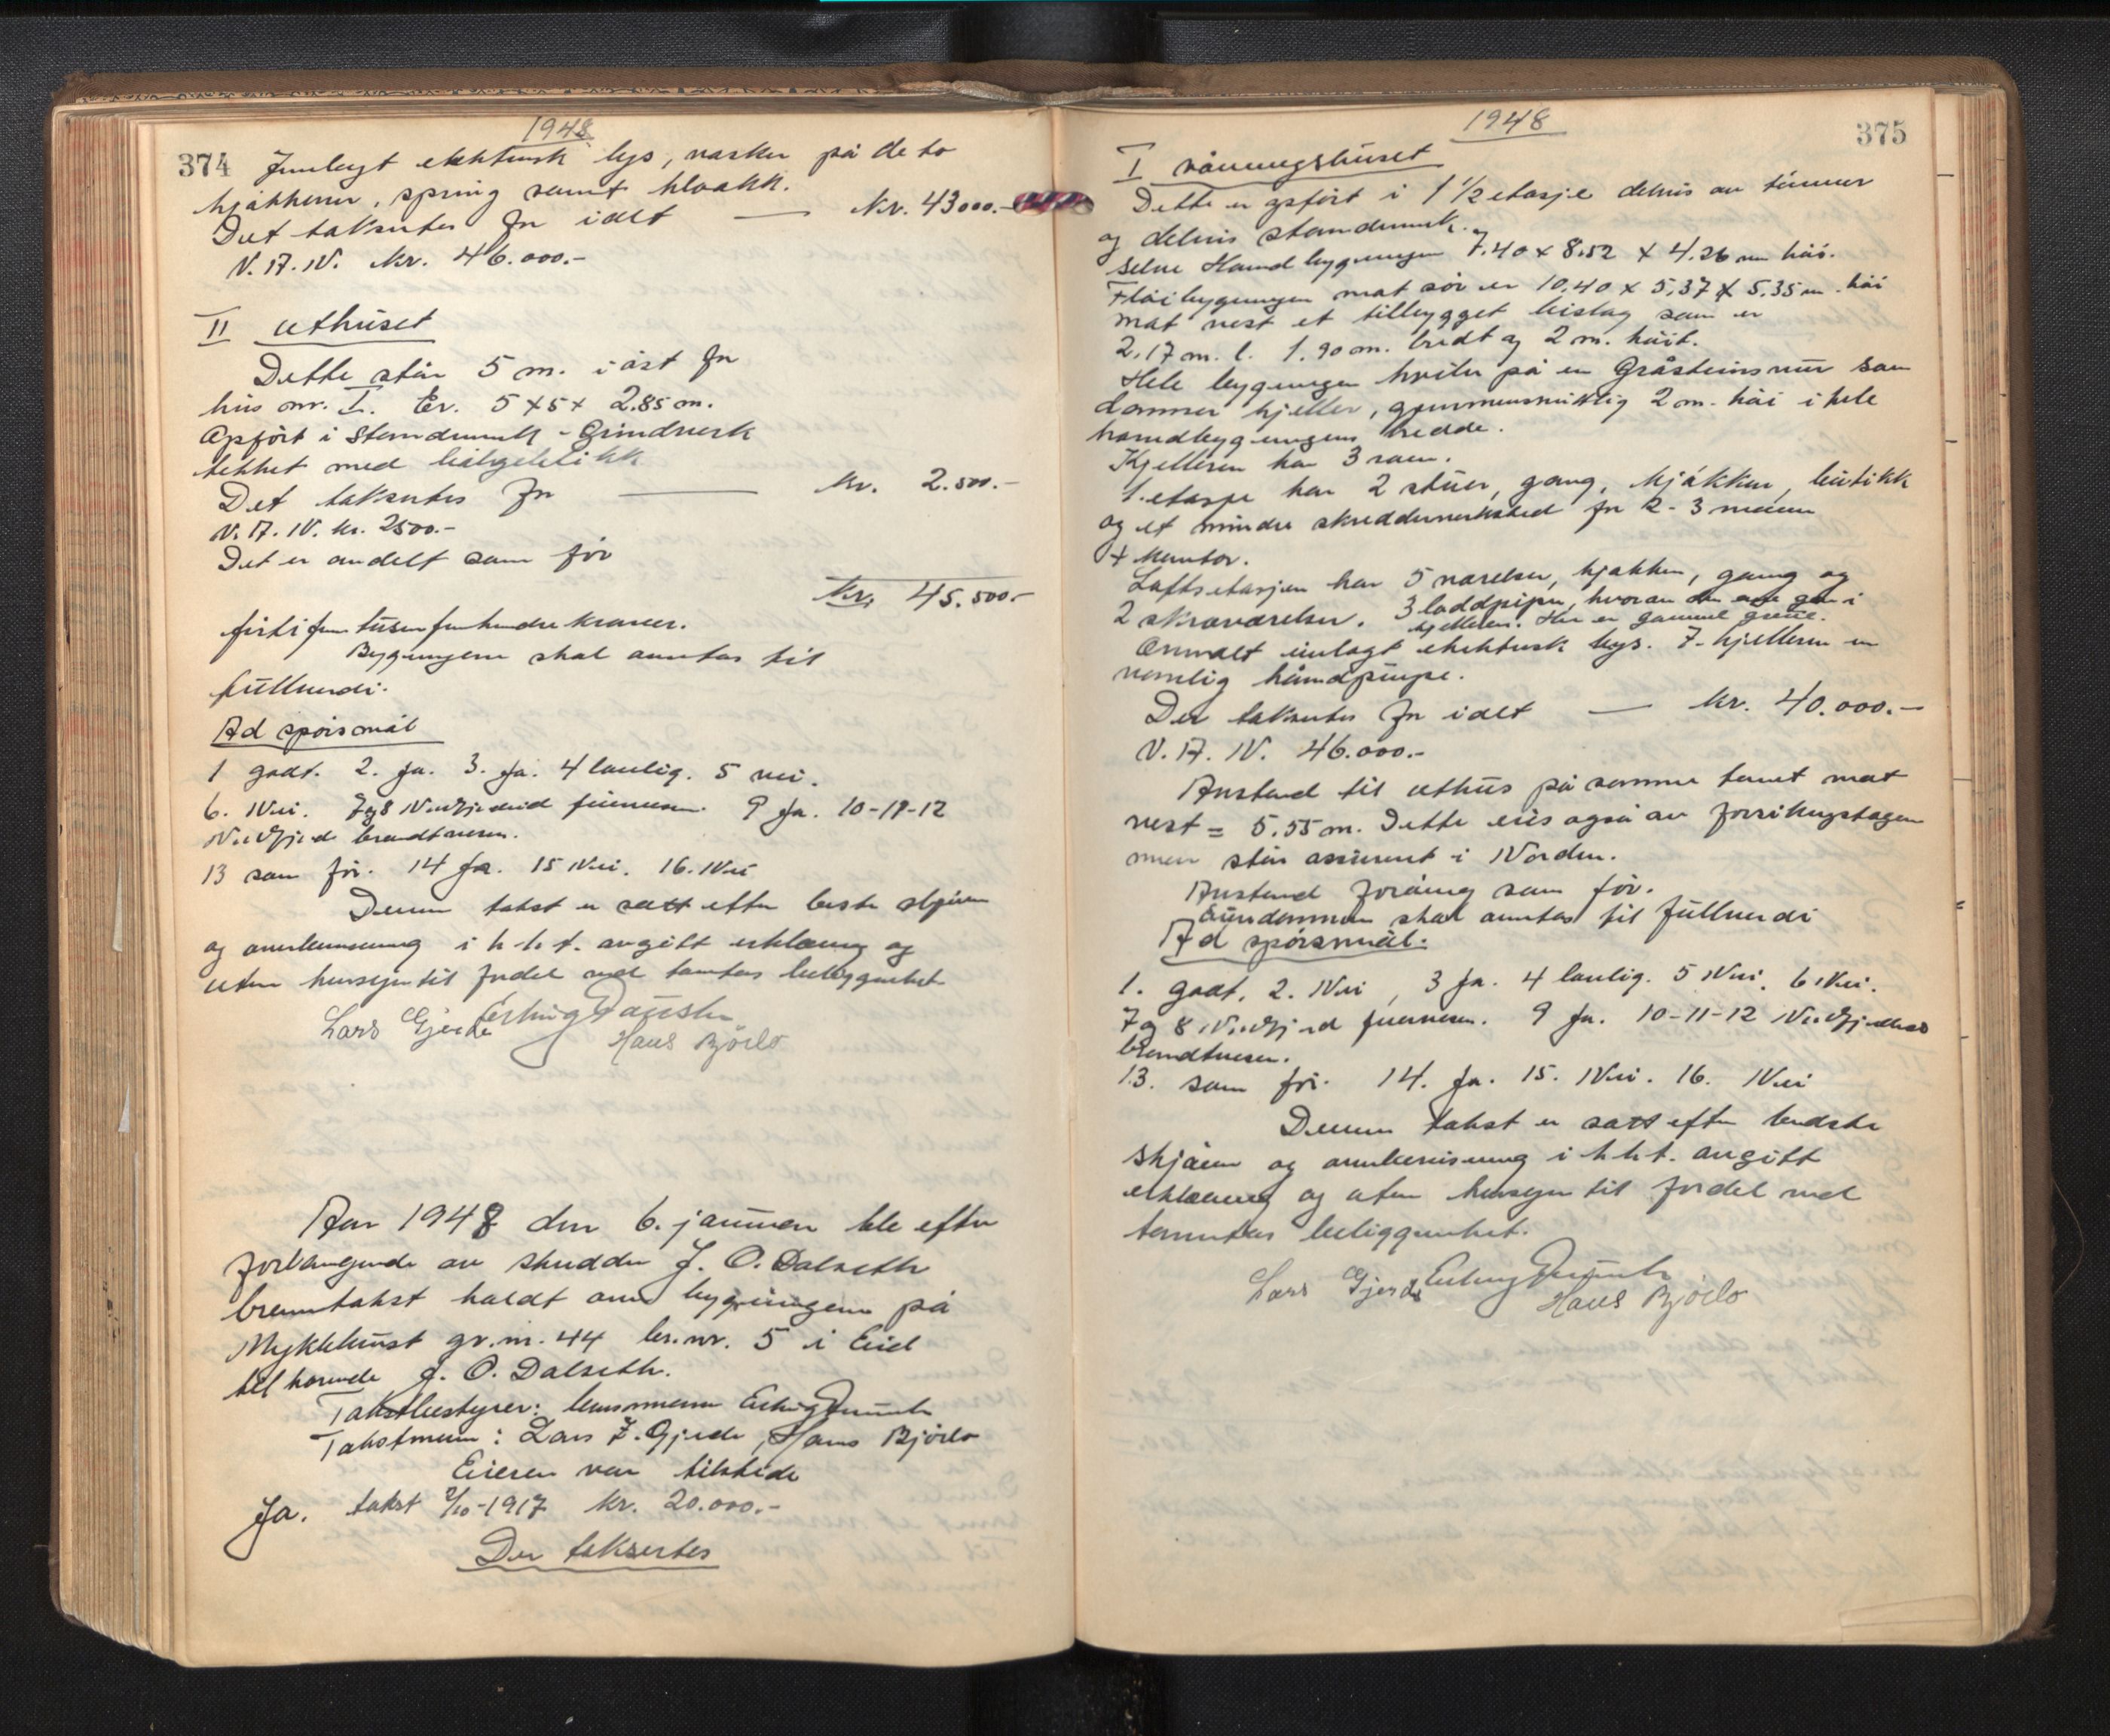 1948
374 Innlagt elektrisk lys, vasker på de to
kjøkkener, spring samt kloakk.
Det takseres for i alt — Kr. 43000.-
V. 17. IV. Kr. 46.000.-
II uthuset
Dette står 5 m. i øst for
hus nr. I. Er. 5 x 5 x 2.85 m.
Opført i Stenderverk - Grindverk
tekket med bølgeblikk
Det takseres for — kr. 2.500.-
V. 17. IV. kr. 2500.-
Det er avdelt som før
Kr. 45.500.-
førtifem tusen fem hundre kroner.
Bygningene skal ansettes til
fullverdi.
Ad spørsmål
1 godt. 2. Ja. 3. Ja. 4 lovlig. 5 nei.
6. Nei. 7 og 8 Nordfjordeid fürvesen. 9 Ja. 10-11-12
Nordfjordeid brandvesen.
13 som før. 14 Ja. 15 Nei. 16. Nei
Denne takst er satt efter beste skjønn
og overbevisning i h.h.t. avgitt erklæring og
uten hensyn til fordel ved tomtens beliggenhet
Lars Gjerde Erling
Hans Bjørlo
Aar 1948 den 6. januar ble efter
forlangende av skredder J. O. Dalseth
branntakst holdt over bygningene på
Myklebust gr.nr. 44 br.nr. 5 i Eid
tilhørende J. O. Dalseth.
Takstbestyrer: lensmann Erling
Takstmenn: Lars J. Gjerde, Hans Bjørlo
Eieren var tilstede
Ja. takst 2/10-1917 kr. 20.000.-
Der takseres
1948
375
I våningshuset
Dette er opført i 1 1/2 etasje delvis av tømmer
og delvis stenderverk.
selve Hovedbygningen 7.40 x 8.52 x 4.26 m høi.
Fløibygningen mot sør er 10.40 x 5.37 x 5.35 m. høi
mot vest et tilbygget bislag som er
2.17 m. l. 1.90 m. bredt og 2 m. høit.
Hele bygningen hviler på en Gråsteinsmur som
danner kjeller, gjennemsnittlig 2 m. høi i hele
hovedbygningens bredde.
Kjelleren har 3 rom.
1. etasje har 2 stuer, gang, kjøkken, butikk
og et mindre skredderverksted for 2-3 mann
+ kontor.
Loftsetasjen har 5 værelser, kjøkken, gang og
2 skråværelser. 3 loddpiper, hvorav den ene går i
kjelleren. Her er gammel grue.
Overalt innlagt elektrisk lys. I kjelleren en
vanlig håndpumpe.
Der takseres for i alt — kr. 40.000.-
V. 17. IV. 46.000.-
Avstand til uthus på samme tomt mot
vest = 5.55 m. Dette eies også av forsikringstageren
men står assurert i Norden.
Avstand forøvrig som før.
Eiendommen skal ansettes til fullverdi
Ad spørsmål:
1. godt, 2. Nei, 3 Ja. 4 lovlig. 5 Nei. 6 Nei.
7 og 8 Nordfjord 9 Ja. 10-11-12 Nordfjordeid
brandvesen.
13. som før. 14. Ja. 15. Nei. 16. Nei
Denne takst er satt efter bedste
skjønn og overbevisning i h.h.t. avgitt
erklæring og uten hensyn til fordel ved
tomtens beliggenhet.
Lars Gjerde Erling
Hans Bjørlo